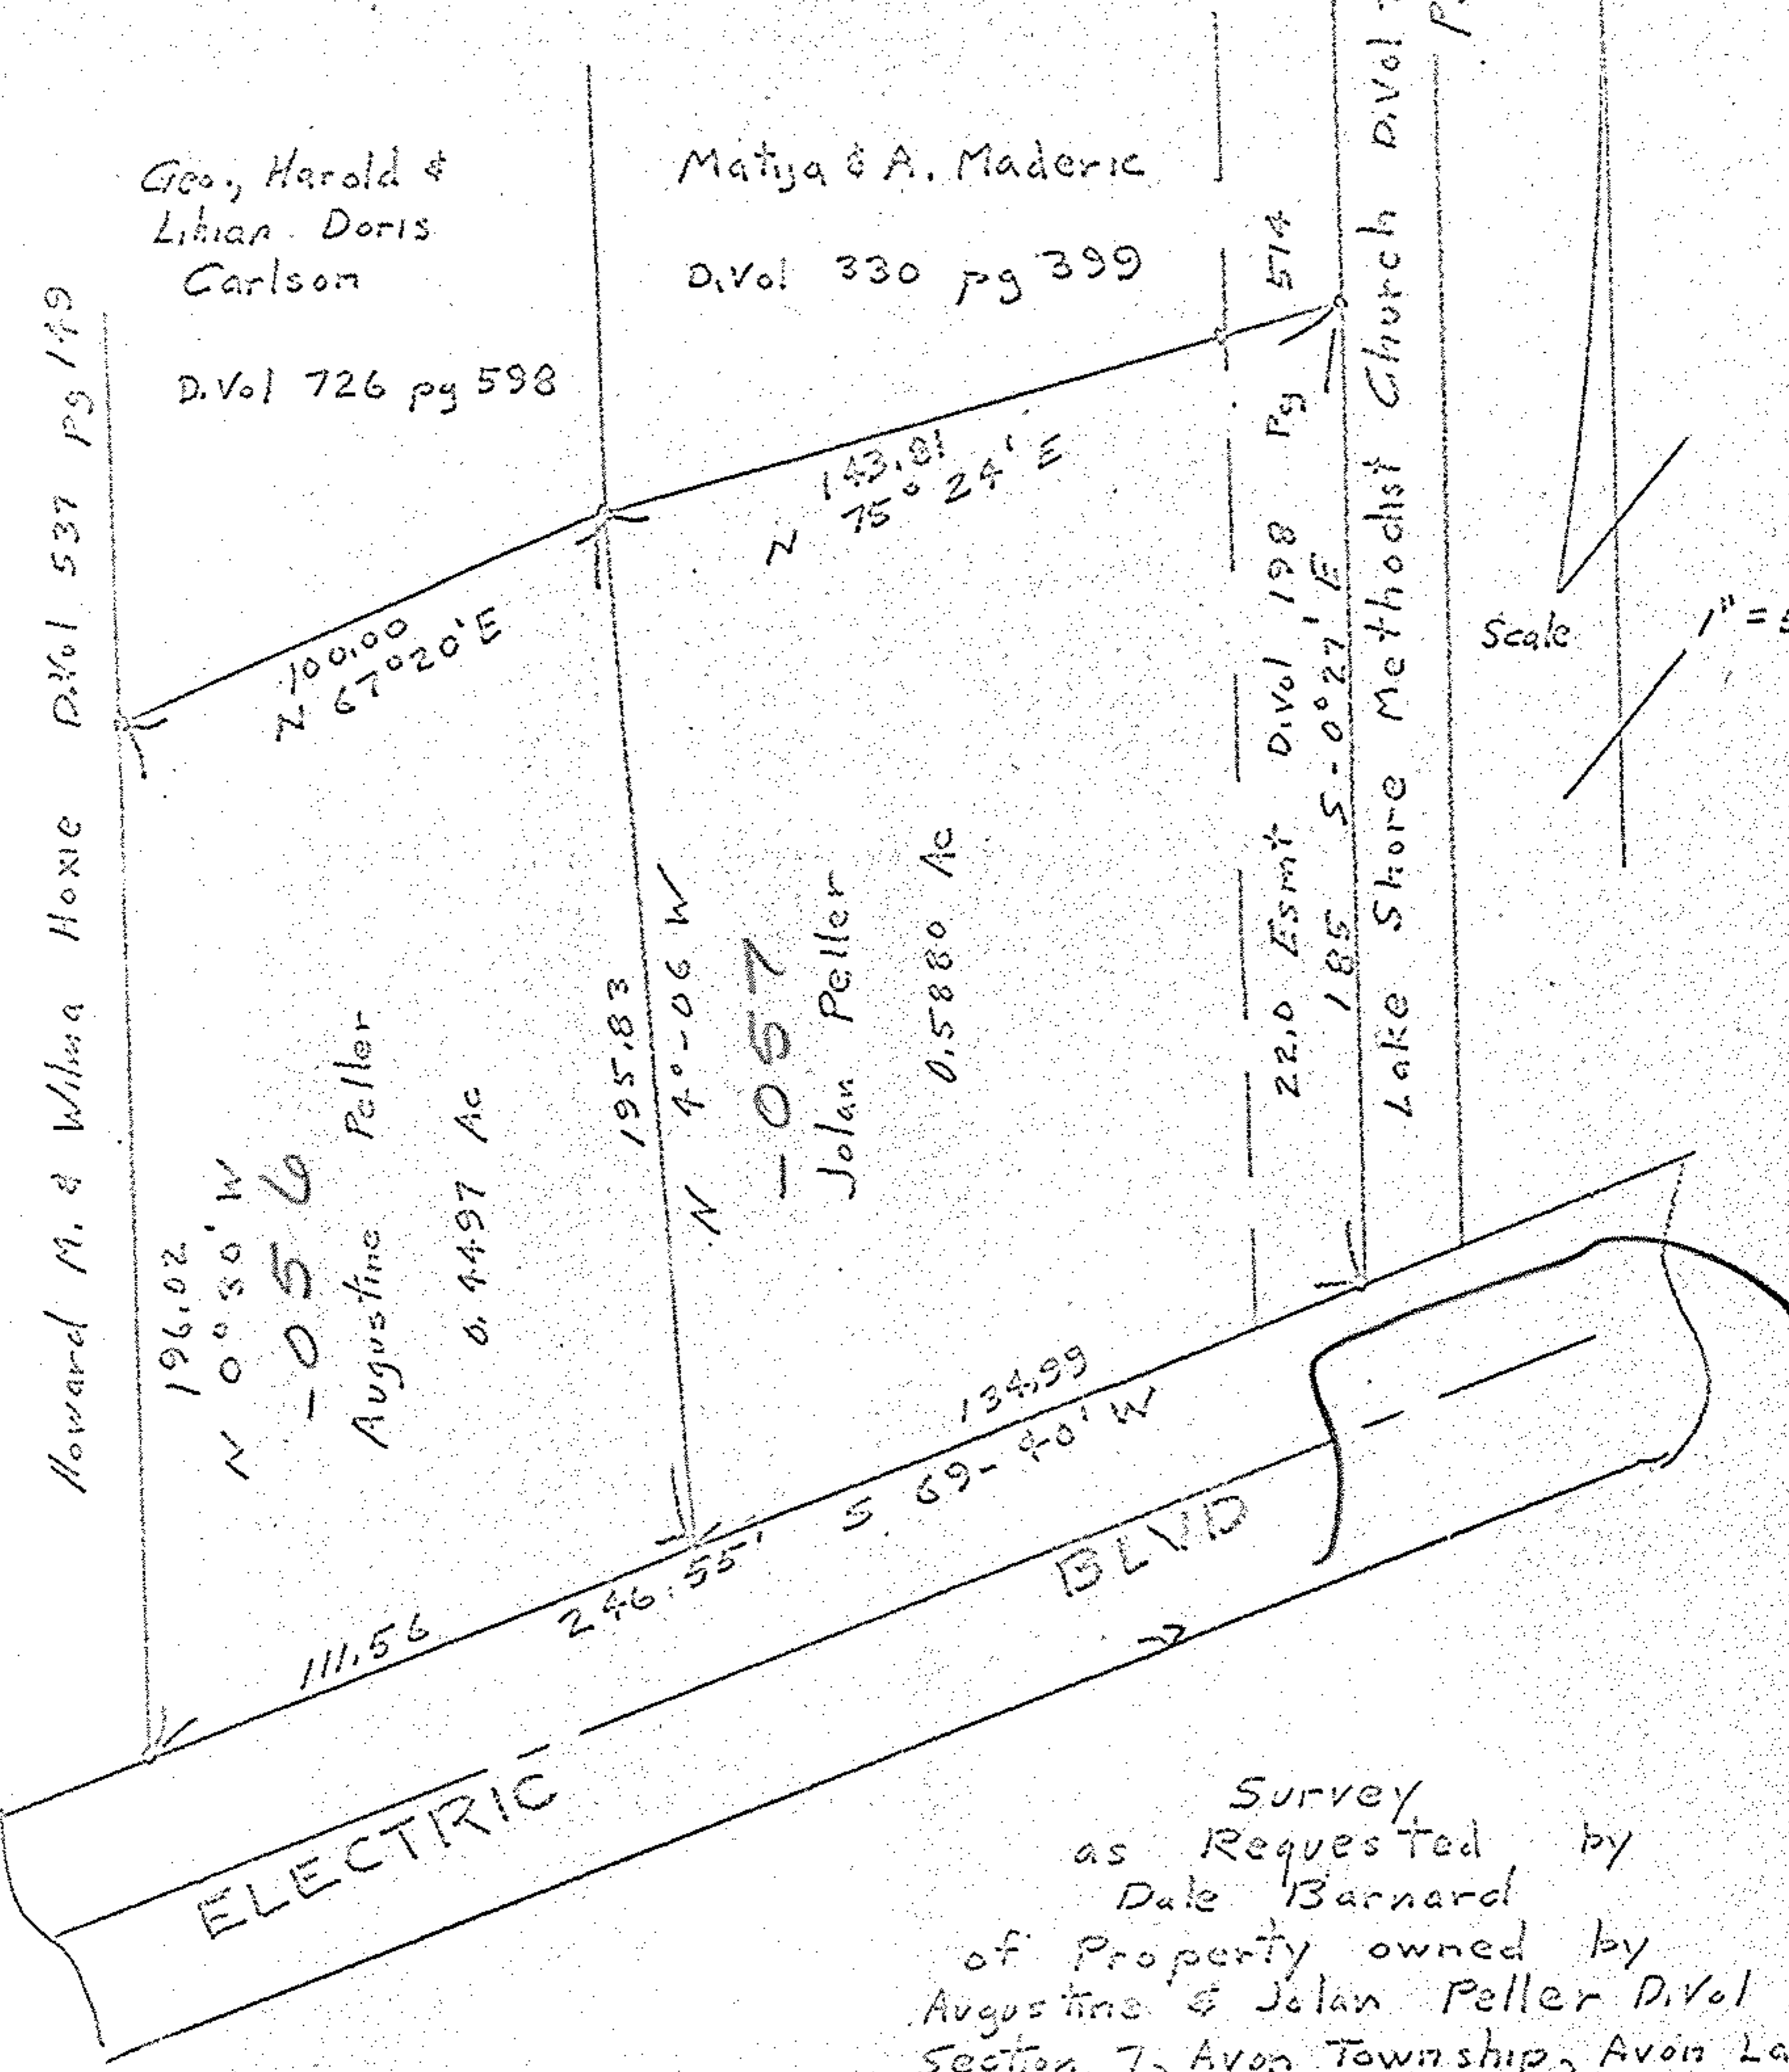 Geo., Harold &
Lilian Doris
Carlson
D.Vol 726 pg 598
Matija & A. Maderic
D.Vol 330 pg 399
Howard M. & Wilma Hoxie D.Vol 537 pg 149
100.00
N 67°20'E
143.81
N 75° 24' E
196.02
N 0°30' W
-056
Augustine Peller
0.4497 Ac
195.83
N 4°-06 W
-057
Jolan Peller
0.5880 Ac
22.0 Esmt D.Vol 198 Pg 514
185 S-0°27' E
Lake Shore Methodist Church D.Vol
Scale
1" =
134.99
S 69-40' W
111.56
246.55'
ELECTRIC BLVD
Survey
as Requested by
Dale Barnard
of Property owned by
Augustine & Jolan Peller D.Vol
Section 7, Avon Township, Avon